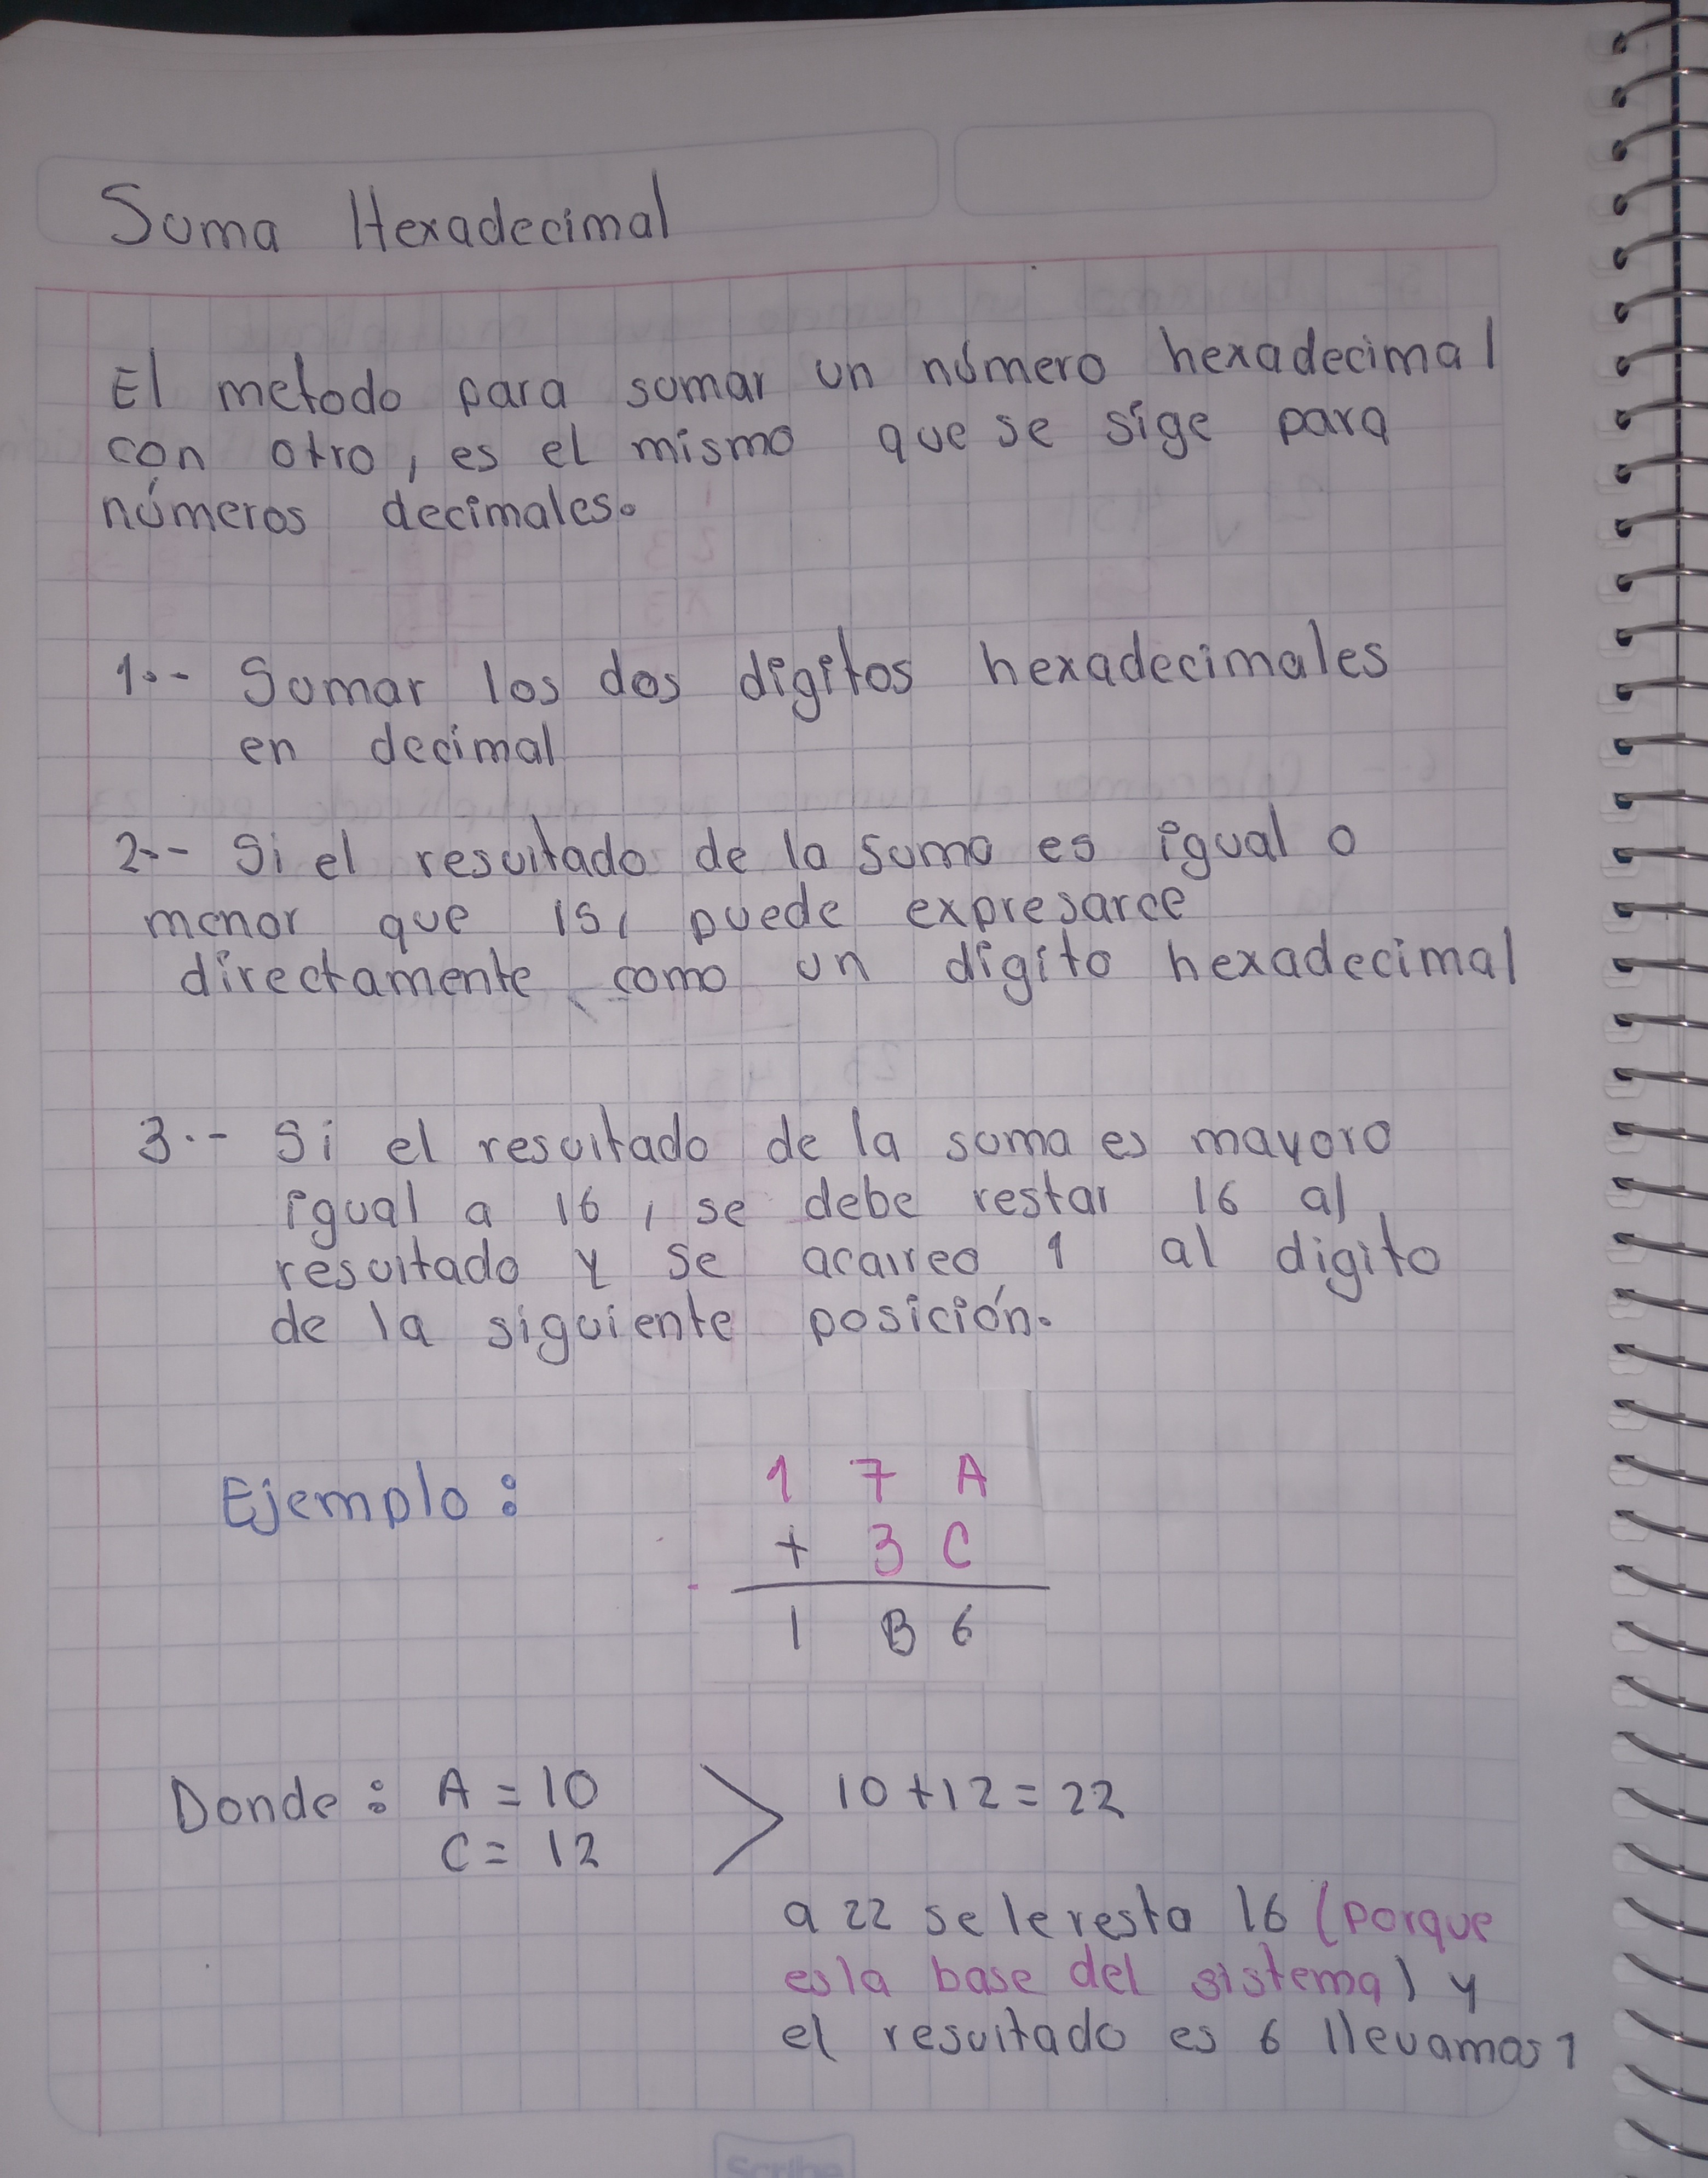 Suma Hexadecimal
El metodo para sumar un número hexadecimal
con otro, es el mismo que se sige para
números decimales.
1.- Sumar los dos digitos hexadecimales
en decimal
2.- Si el resultado de la suma es igual o
menor que 15, puede expresarce
directamente como un digito hexadecimal
3.- Si el resultado de la suma es mayor o
igual a 16, se debe restar 16 al
resultado y se acarreo 1 al digito
de la siguiente posición.
Ejemplo:
1 7 A
+ 3 C
1 B 6
Donde: A = 10 > 10 + 12 = 22
C = 12
a 22 se le resta 16 (porque
es la base del sistema) y
el resultado es 6 llevamos 1
Scribe